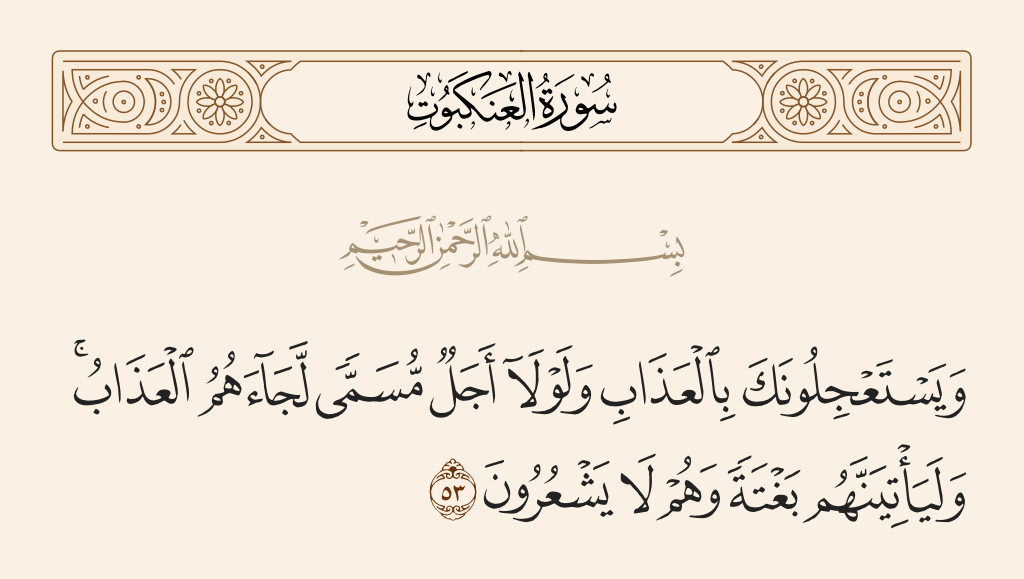 سُورَةُ العَنكَبُوتِ
بِسْمِ ٱللَّهِ ٱلرَّحْمَٰنِ ٱلرَّحِيمِ
وَيَسْتَعْجِلُونَكَ بِٱلْعَذَابِ وَلَوْلَآ أَجَلٌ مُّسَمًّى لَّجَآءَهُمُ ٱلْعَذَابُ ۚ
وَلَيَأْتِيَنَّهُم بَغْتَةً وَهُمْ لَا يَشْعُرُونَ ٥٣